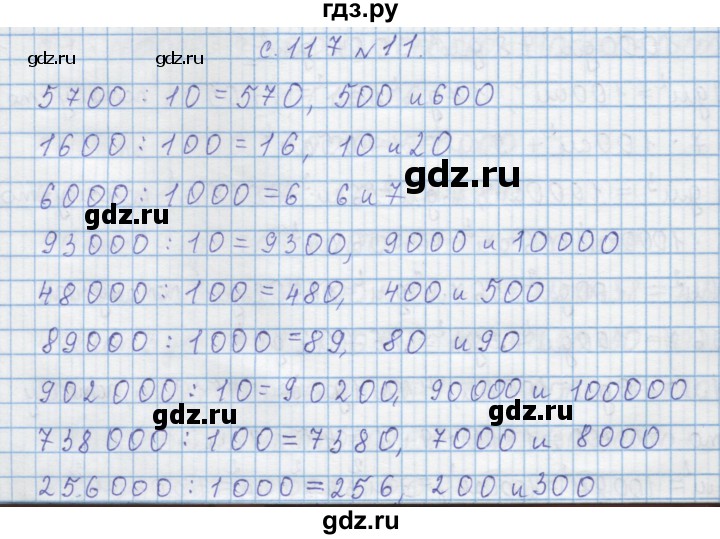 гдз.ру
gdz.ru gdz.ru с. 117 № 11.
5700 : 10 = 570, 500 и 600
1600 : 100 = 16, 10 и 20
gdz.ru
6000 : 1000 = 6 6 и 7
gdz.ru
93000 : 10 = 9300, 9000 и 10000
48000 : 100 = 480, 400 и 500
89000 : 1000 = 89, 80 и 90
902 000 : 10 = 90200, 90000 и 100000
gdz.ru gdz.ru
738 000 : 100 = 7380, 7000 и 8000
256000 : 1000 = 256, 200 и 300
gdz.ru